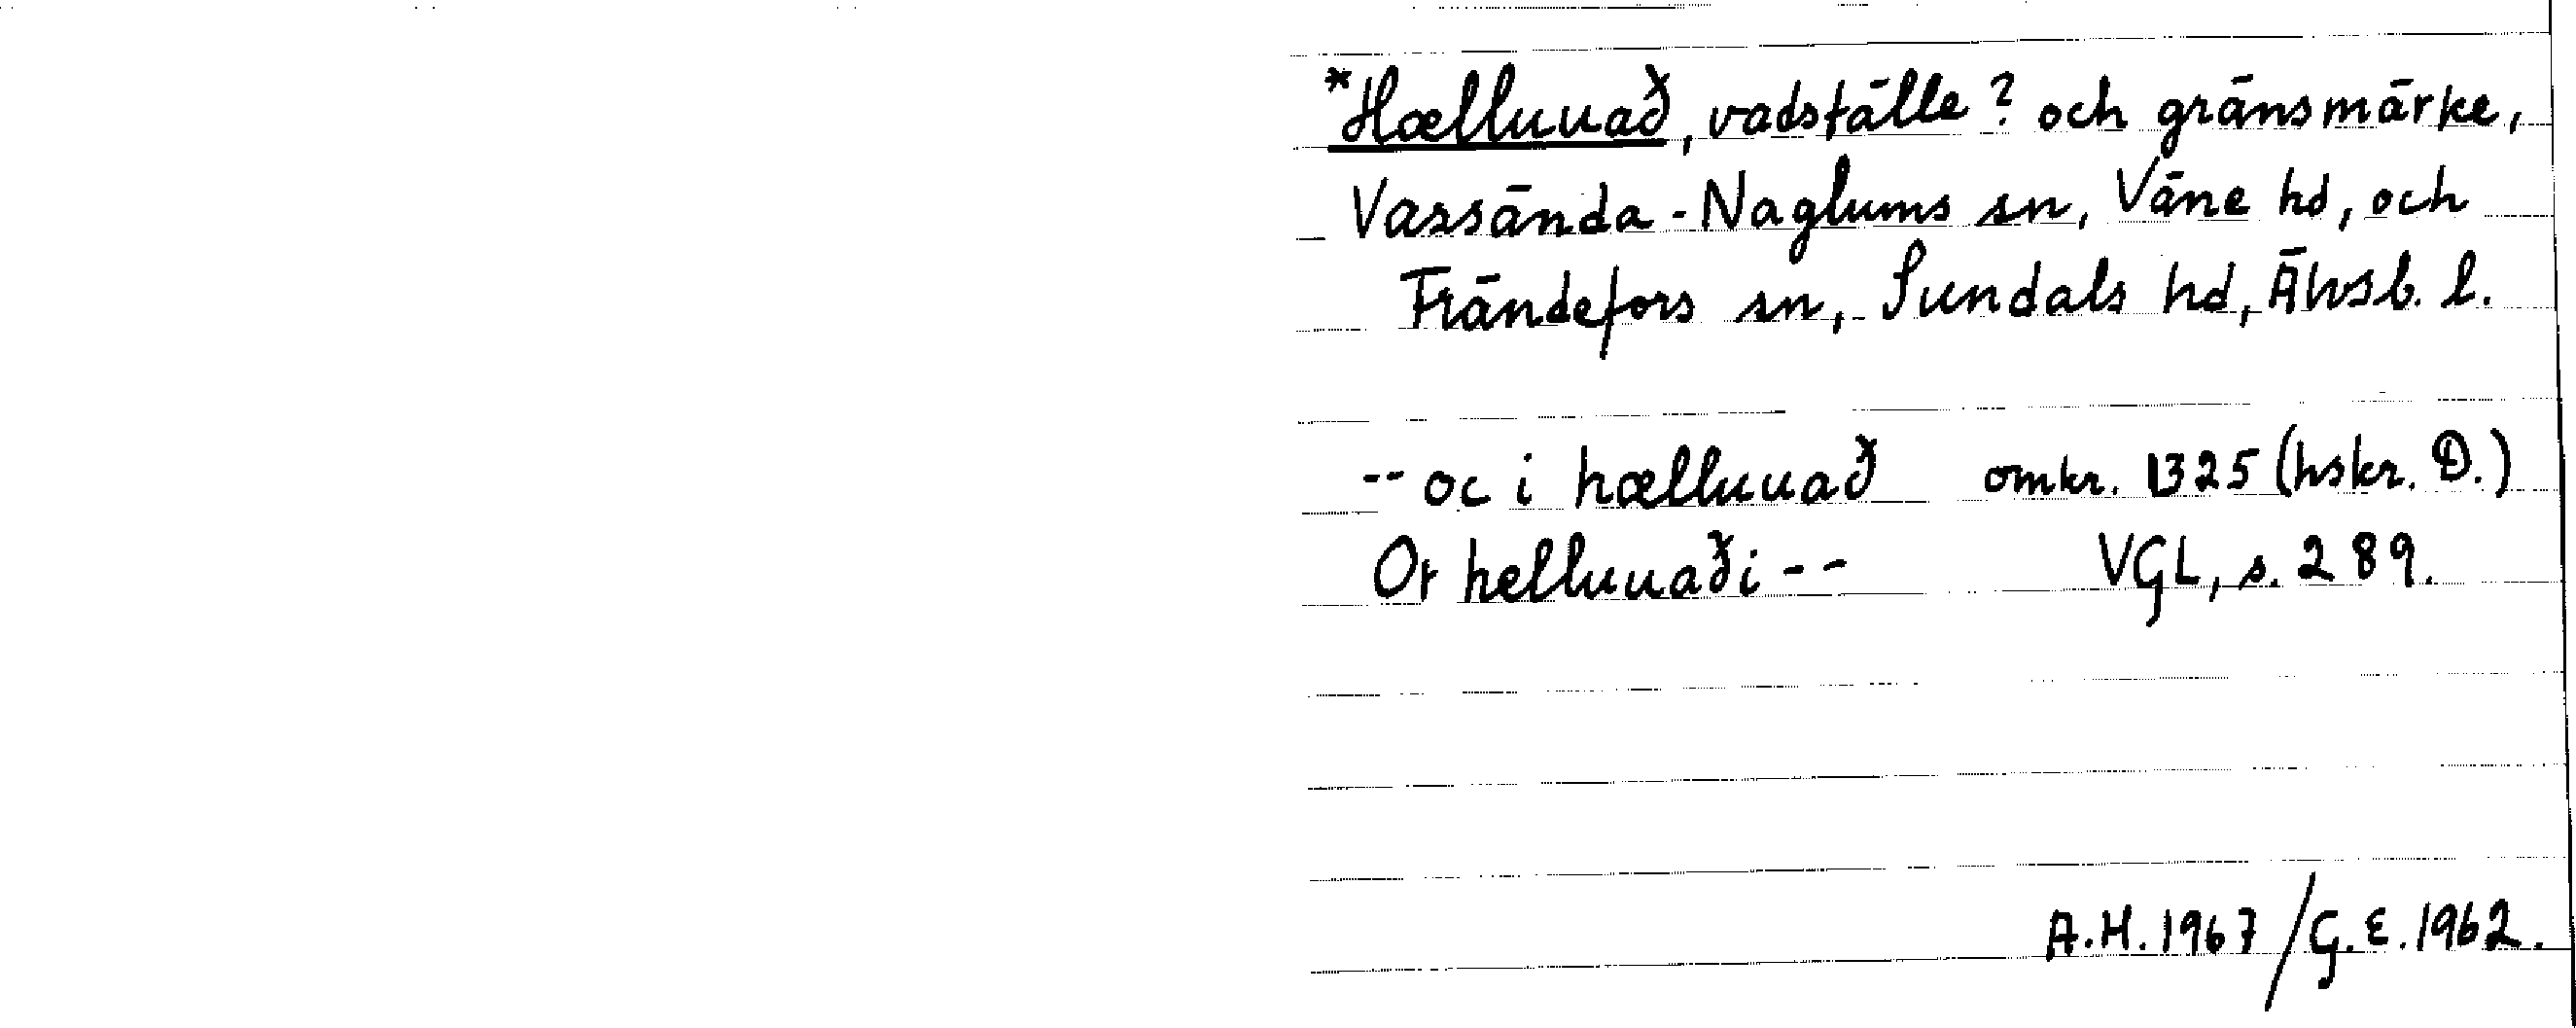 *Hælluuað, vadställe? och gränsmärke,
Vassända-Naglums sn, Väne hd, och
Frändefors sn, Sundals hd, Älvsb. l.
-- oc i hælluuað omkr. 1325 (hskr. D.)
Or helluuaði -- VGL, s. 289.
A.H. 1967/G.E. 1962.